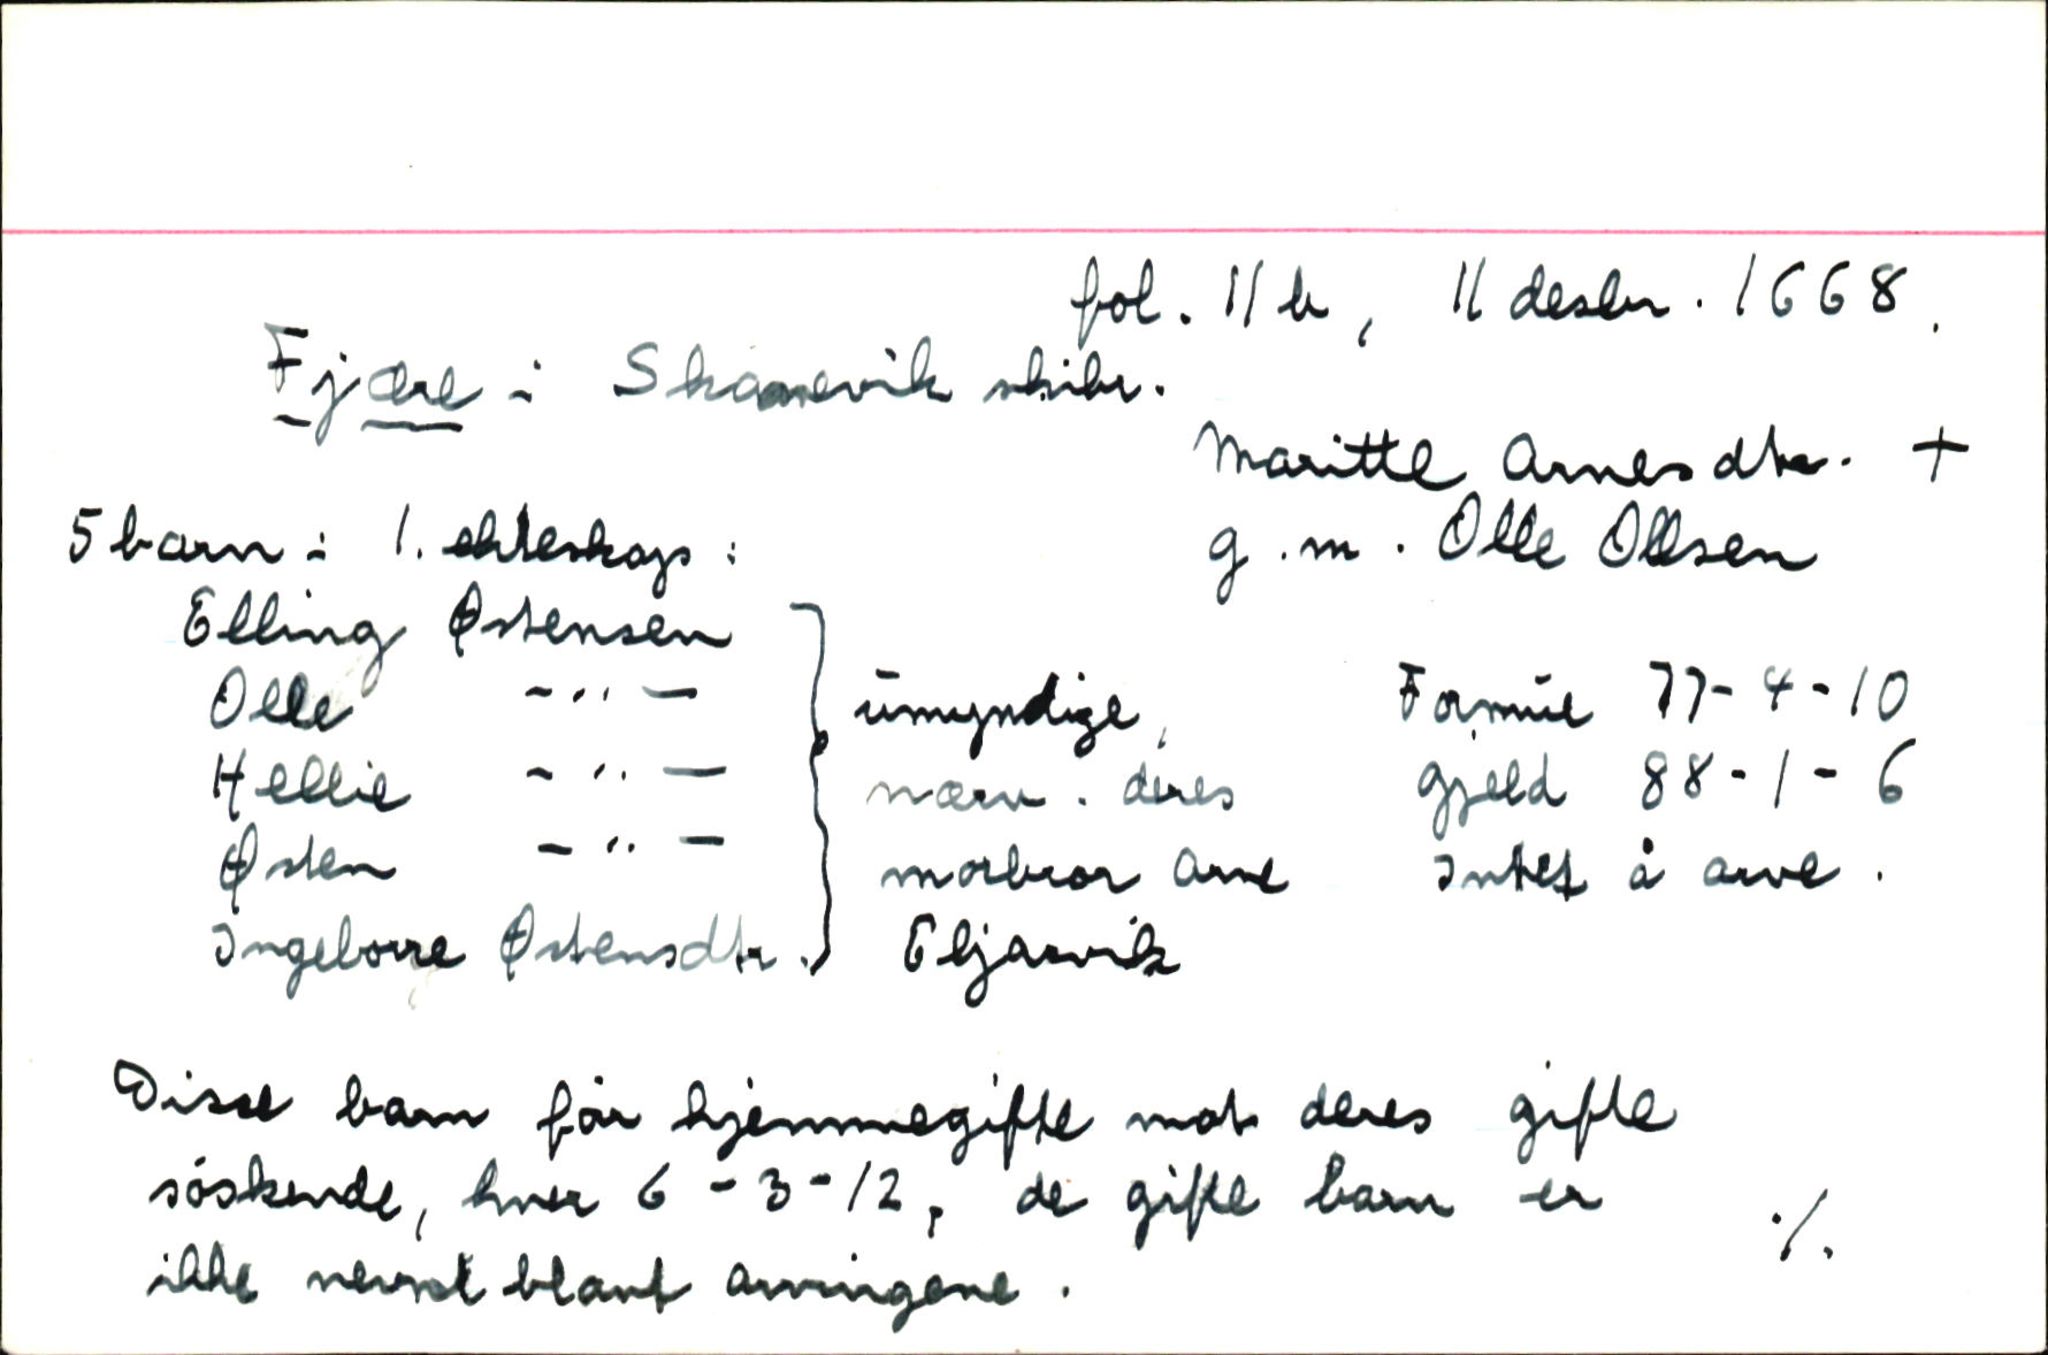 fol. 11b, 11 desbr. 1668.
Fjære : Skanevik skibr.
Maritte Arnesdtr. +
g.m. Olle Ollsen
5 barn : 1. ekteskap :
Elling Østensen
Olle -"-
Hellie -"-
Østen -"-
Ingeborre Østensdtr.
umyndige,
nærv. deres
morbror Arne
Eljarvik
Formue 77-4-10
Gjeld 88-1-6
Intet å arve.
Disse barn får hjemmegifte mot deres gifte
søskende, hver 6-3-12, de gifte barn er
ikke nevnt blant arvingene.
./.